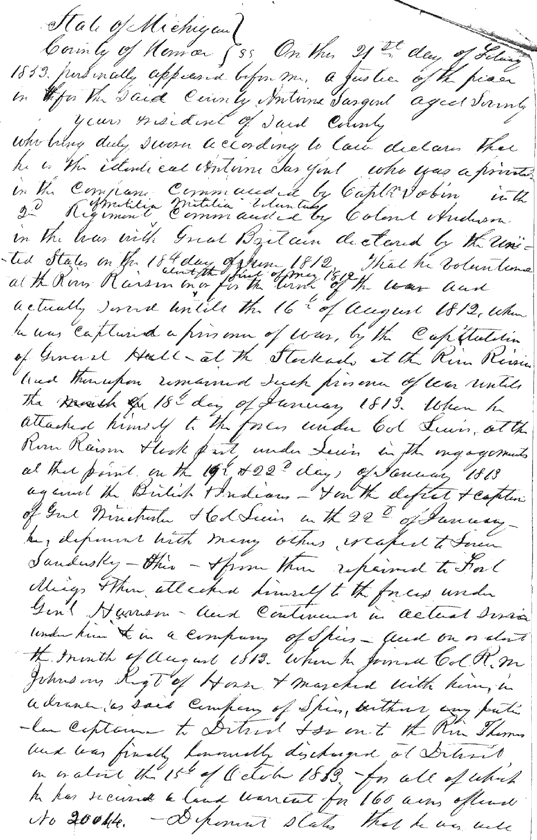 State of Michigan }
County of Monroe } SS On this 21st day of Febuy
1853. personally appeared before me, a Justice of the peace
in & for the said County Antoine Sargent aged Seventy
years & resident of said County
who being duly sworn according to law declares that
he is the identical Antoine Sargent who was a private
in the Company Commanded by Captn Jobin in the
2d Regiment of Militia Militia Volunteers Commanded by Colonel Anderson
in the war with Great Britain declared by the Uni-
-ted States on the 18th day of June 1812 That he Volunteered
at the River Raisin about the first of May 1812 on or for the term of the war and
actually served untill the 16th of August 1812, when
he was captured a prisoner of war, by the Capitulation
of General Hull - at the Stockade at the River Raisin
and thereupon remained such prisoner of war untill
the 18th day of January 1813. When he
attached himself to the forces under Col Lewis, at the
River Raisin & took part under Lewis in the engagements
at that point on the 19th & 22d days of January 1813
against the British & Indians - & on the defeat & capture
of Genl Winchester & Col Lewis on the 22d of January -
he, deponent with many others, escaped to Lower
Sandusky - Ohio - & from there repaired to Fort
Meigs & then attached himself to the forces under
Genl Harrison - and continued in actual service
under him & in a company of Spies - and on or about
the month of August 1813. when he joined Col R. M
Johnsons Regt of Horse & marched with him, in
advance, as said Company of Spies, without any particu
-lar Captaine to Detroit & so on to the River Thames
and was finally honourably discharged at Detroit
on or about the 15th of October 1813, - for all of which
he has received a land warrant for 160 acres of land
No 20044. - Deponent states that he was well